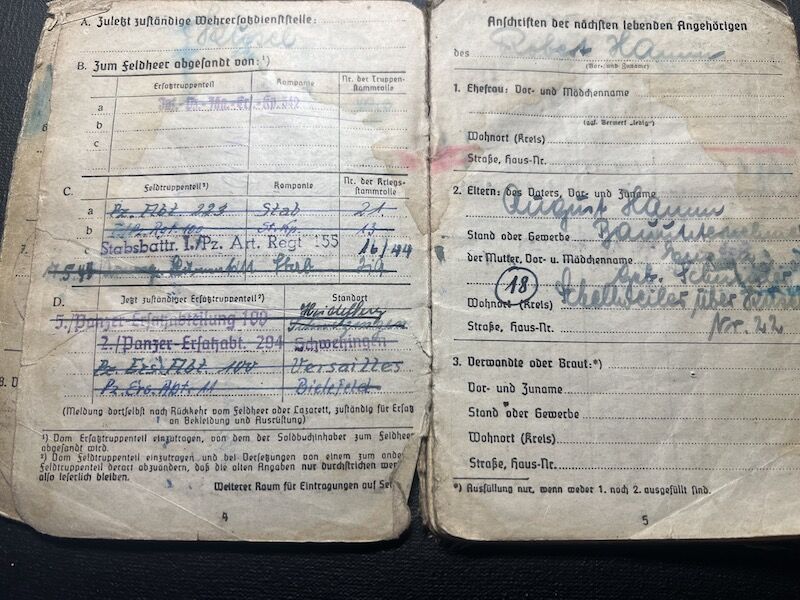 A. Zuletzt zuständige Wehrersatzdienststelle:
B. Zum Feldheer abgesandt von:¹)
Ersatztruppenteil Kompanie Nr. der Truppen-
stammrolle
a
b
c
C. Feldtruppenteil²) Kompanie Nr. der Kriegs-
stammrolle
a Pz. Abt 223 Stab 21
b 13
c Stabsbattr. I./Pz. Art. Regt 155 16/44
Stab
D. Jetzt zuständiger Ersatztruppenteil²) Standort
Heidelberg
5./Panzer-Ersatzabteilung 100 Schwetzingen
2./Panzer-Ersatzabt. 204 Schwetzingen
Pz. Ers. Abt 100 Versailles
Pz. Ers. Abt. 11 Bielefeld
(Meldung dortselbst nach Rückkehr vom Feldheer oder Lazarett, zuständig für Ersatz
an Bekleidung und Ausrüstung)
¹) Vom Ersatztruppenteil einzutragen, von dem der Soldbuchinhaber zum Feldheer
abgesandt wird.
²) Vom Feldtruppenteil einzutragen und bei Versetzungen von einem zum ander
Feldtruppenteil derart abzuändern, daß die alten Angaben nur durchstrichen wer
also leserlich bleiben.
Weiterer Raum für Eintragungen auf Sei
4
Anschriften der nächsten lebenden Angehörigen
des Robert Hamm
(Vor- und Zuname)
1. Ehefrau: Vor- und Mädchenname
(ggf. Vermerk „ledig“)
Wohnort (Kreis)
Straße, Haus-Nr.
2. Eltern: des Vaters, Vor- und Zuname
August Hamm
Stand oder Gewerbe
der Mutter, Vor- u. Mädchenname
geb.
18
Wohnort (Kreis) Schellweiler über
Straße, Haus-Nr. Nr. 22
3. Verwandte oder Braut:*)
Vor- und Zuname
Stand oder Gewerbe
Wohnort (Kreis)
Straße, Haus-Nr.
*) Ausfüllung nur, wenn weder 1. noch 2. ausgefüllt sind.
5